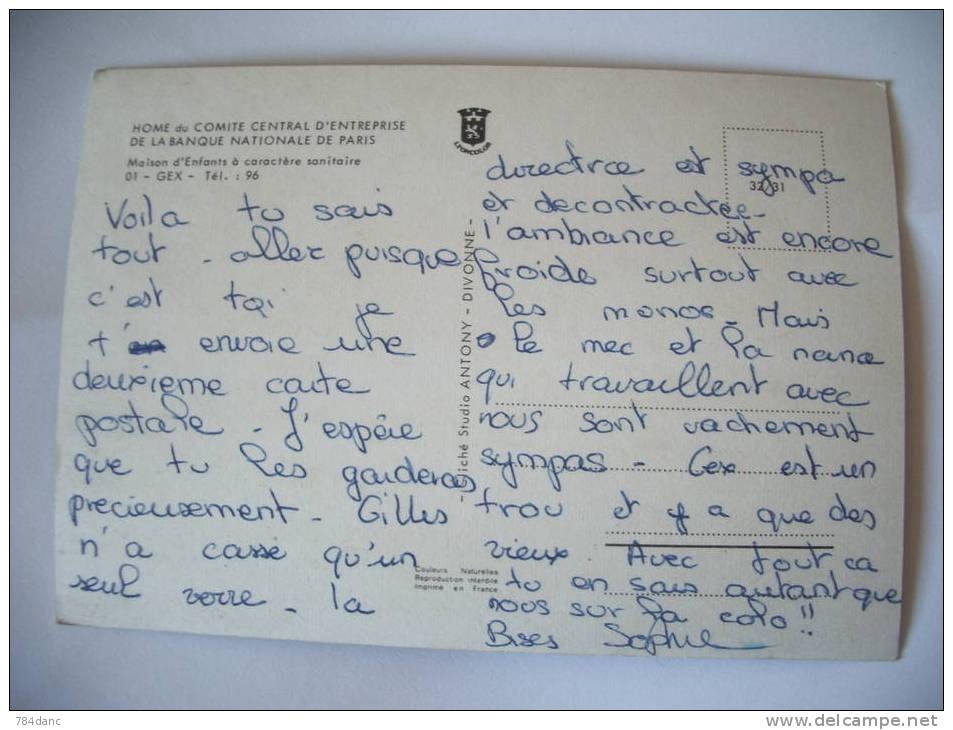 HOME du COMITE CENTRAL D'ENTREPRISE
DE LA BANQUE NATIONALE DE PARIS
Maison d'Enfants à caractère sanitaire
01 - GEX - Tél. : 96
Voila tu sais
tout - aller puisque
c'est toi je
t' envoie une
deuxieme carte
postale - J'espère
que tu les garderas
precieusement - Gilles
n'a cassé qu'un
seul verre - la
LYONCOLOR
- Cliché Studio ANTONY - DIVONNE -
Couleurs Naturelles
Reproduction interdite
Imprimé en France
32/31
directrce est sympa
et decontractée -
l'ambiance est encore
froide surtout avec
les monos - Mais
le mec et la nana
qui travaillent avec
nous sont vachement
sympas - Gex est un
trou et y a que des
vieux. Avec tout ca
tu en sais autant que
nous sur la colo !!
Bises Sophie
784danc
www.delcampe.net